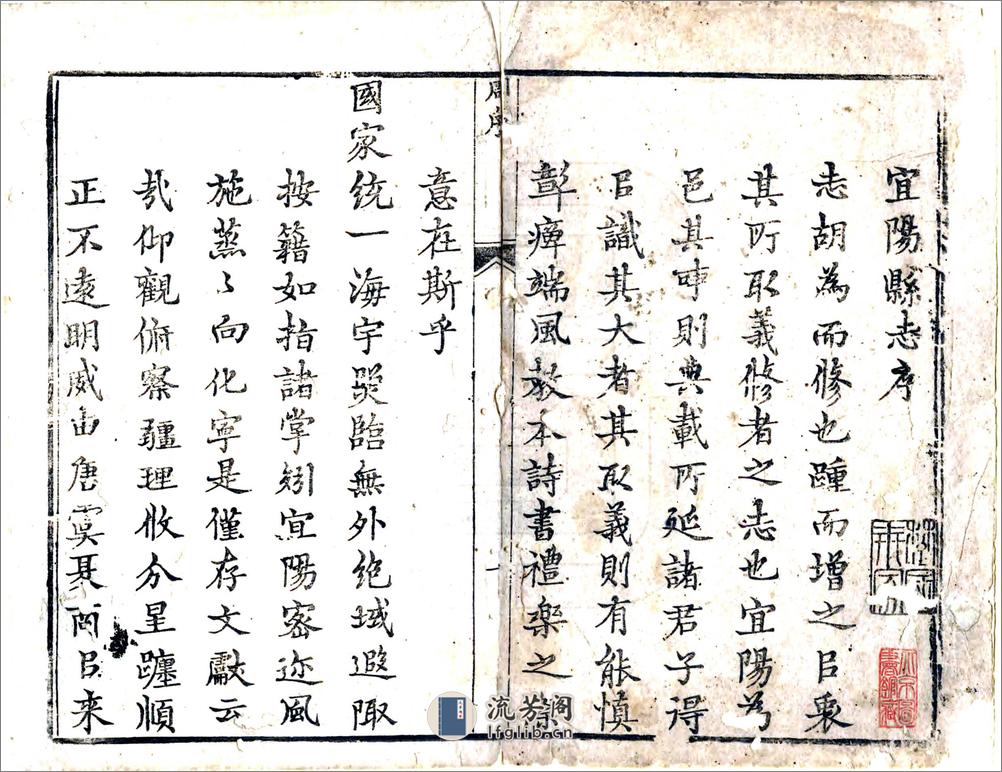 宜陽縣志序
志胡為而修也踵而增之㠯表
其所取義修者之志也宜陽為
邑其時則典載所延諸君子得
㠯識其大者其取義則有能慎
彰癉端風教本詩書禮樂之
意在斯乎
國家統一海宇照臨無外絶域遐陬
按籍如指諸掌矧宜陽密迩風
施蒸〻向化寧是僅存文獻云
㢤仰觀俯察疆理攸分星躔順
正不遠明威由唐虞夏商㠯来
周序
一
流芳閣
lfglib.cn